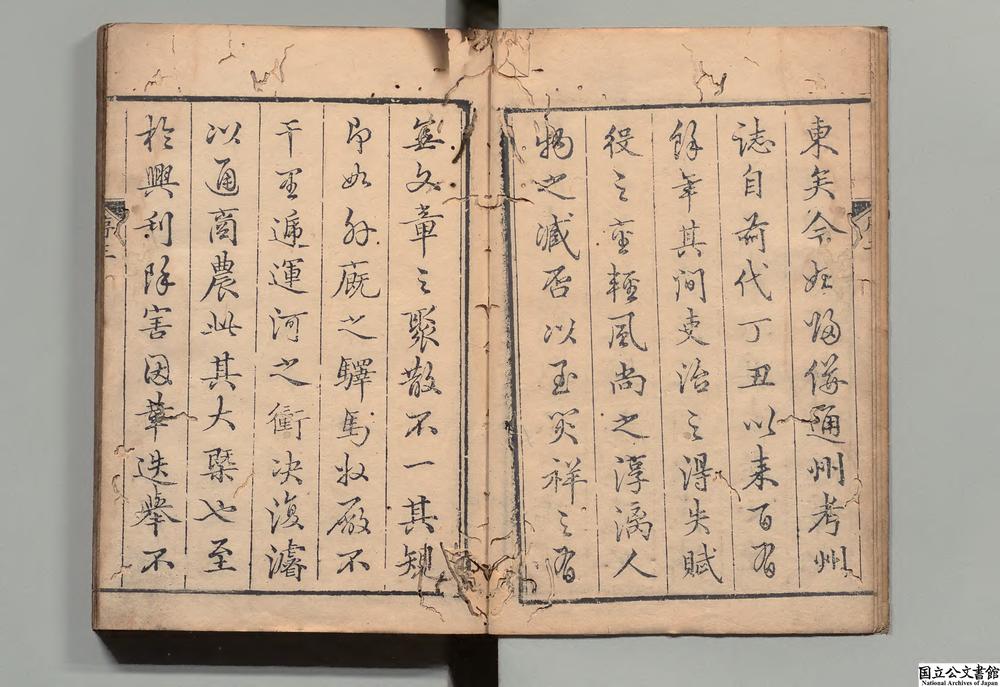 東矣今始歸併通州考州
誌自前代丁丑以来百有
餘年其間吏治之得失賦
役之重輕風尚之淳漓人
物之臧否以至災祥之有
無文章之聚散不一其規
即如外廐之驛馬牧廠不
干里遞運河之衝決復濬
以通商農此其大槩也至
於興利除害因革迭舉不
国立公文書館
National Archives of Japan